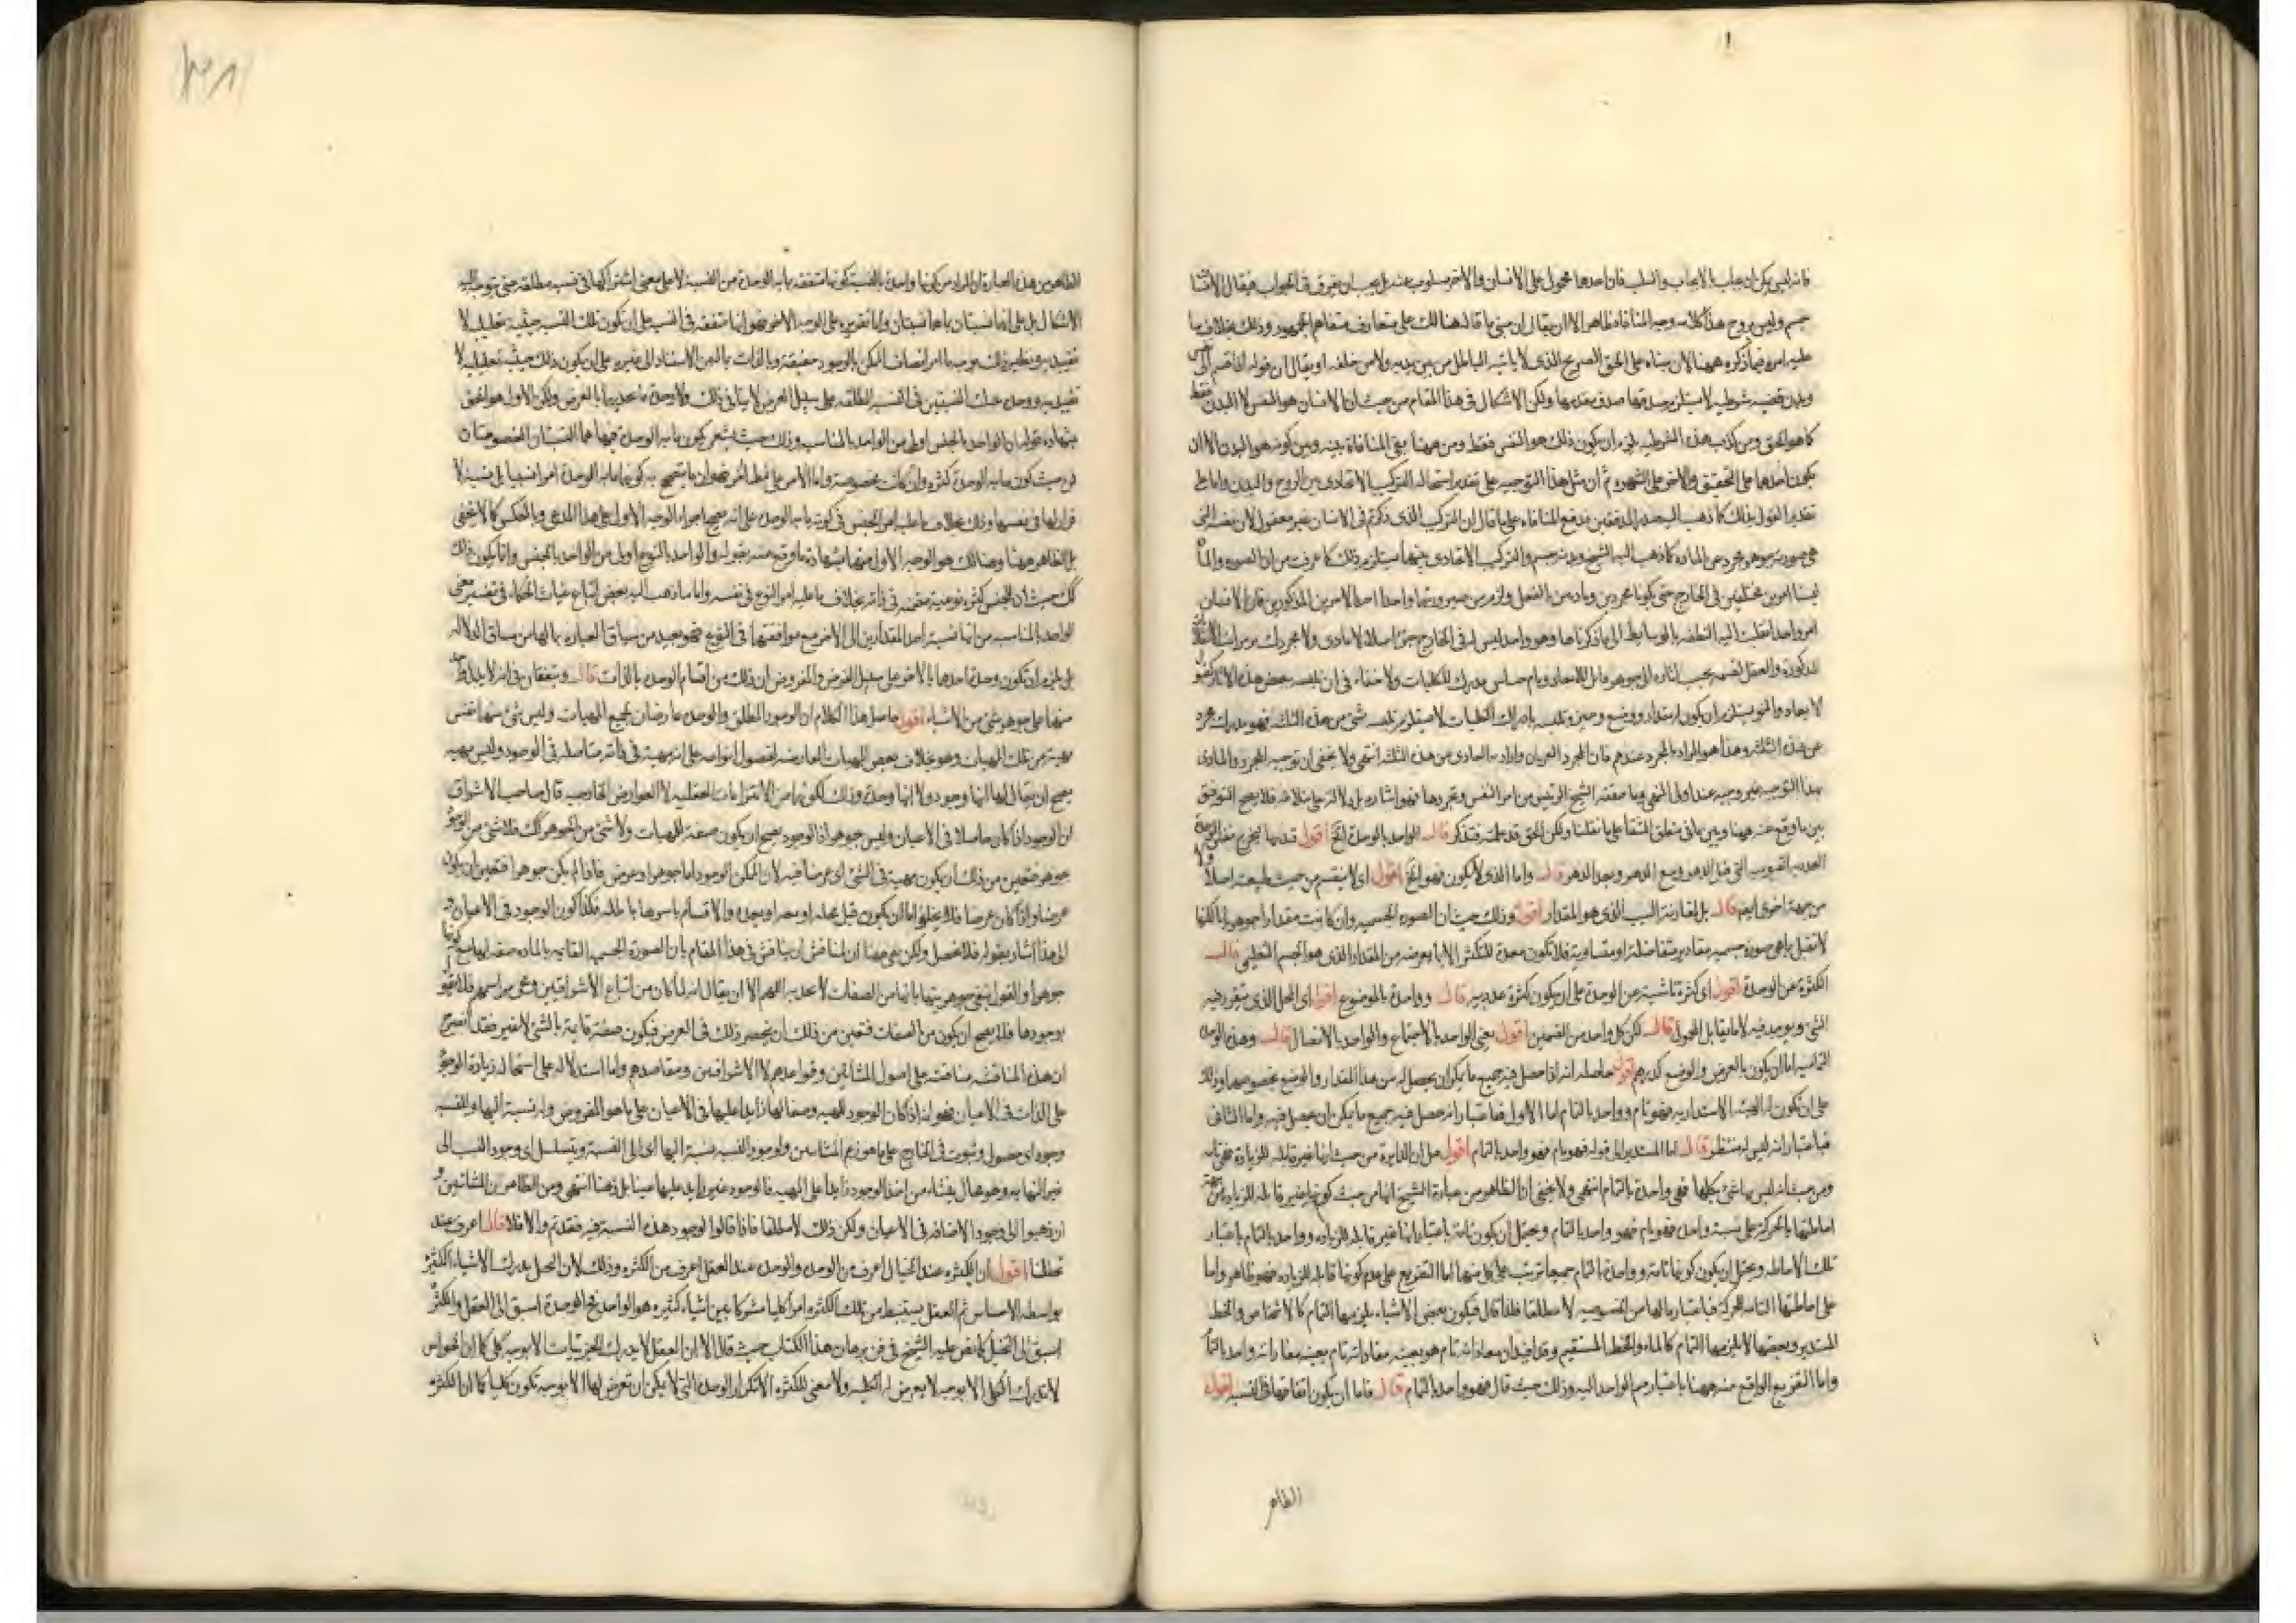 فانه ليس يمكن ان يجاب بالايجاب والسلب فان احدها محمول على الانسان والاخر مسلوب عنه بل يجب ان يفرق في الجواب فيقال الانسان
جسم وليس بروح هذا كلامه وجه المنافاة ظاهر الا ان يقال ان مبنى ما قاله هنالك على متعارف متفاهم الجمهور وذلك بخلاف ما
عليه امره فيما ذكره ههنا لان بناه على الحق الصريح الذى لا ياتيه الباطل من بين يديه ولا من خلفه او يقال ان قوله
وبدن قضية شرطيه لا يستلزم صدقها صدق مقدمها ولكن الاشكال في هذا المقام من حيث ان الانسان هو النفس لا البدن فقط
كما هو الحق ومن كذب هذه الشرطيه يلزم ان يكون ذلك هو النفس فقط ومن ههنا بقى المنافاة بينه وبين كونه هو البدن الا ان
يكون احدها على التحقيق والاخر على الشهره ثم ان مثل هذا التوجيه على تقدير استحالة التركيب الاتحادى بين الروح والبدن واما على
تقدير القول بذلك كما ذهب اليه بعض المدققين يدفع المنافاه على ما قال ان التركيب الذى ذكرتم في الانسان غير معقول لان نفسه التى
هى صورته جوهر مجرد عن المادة كما ذهب اليه الشيخ وبدنه جسم والتركيب الاتحادى بينهما يستلزم ذلك كما عرفت من ان الصوره والمادة
ليسا امرين مختلفين في الخارج حتى يكونا مجردين وماديين بالفعل ولزم من صيرورتهما واحدا احد الامرين المذكورين فان الانسان
امر واحد انقلبت اليه النطفه بالوسايط الى ما ذكرناها وهو واحد ليس له في الخارج جزء اصلا لا مادى ولا مجرد
المذكورة والعقل يقسمه بحسب اثاره الى جوهر قابل للابعاد ونام حساس مدرك للكليات ولا خفاء في ان تلبسه ببعض هذه الاثار
لا بعاد والنمو يستلزم ان يكون له مقدار ووضع وحيز وتلبسه بادراك الكليات لا يستلزم تلبسه بشئ من هذه الثلثه فهو مدرك مجرد
عن هذه الثلثه وهذا هو المراد بالمجرد عندهم فان المجرد العريان واراد به العارى من هذه الثلثه انتهى ولا يخفى ان توجيه المجرد والمادى
بهذا التوجيه غير وجيه عند اولى النهى وما حققه الشيخ الرئيس من امر النفس وتجردها
بين ما وقع عنه ههنا وبين ما في منطق الشفا على ما نقلنا ولكن الحق قد علمته فتذكر قال الواحد بالوحدة الخ اقول
قال واما الذى لا يكون فهو الخ اقول اى لا ينقسم من حيث طبيعته اصلا
من جهة اخرى ايضا قال بل لمقارنة السبب الذى هو المقدار اقول وذلك حيث ان الصوره الجسميه وان كانت مقدارا جوهريا لكنها
لا تقبل بما هى صورة جسميه مقادير متفاضلة او متساوية فلا تكون معدة للتكثر الا بما يعرضه من المقدار الذى هو الجسم التعليمى قال
الكثرة عن الوحدة اقول اى كثرة ناشية عن الوحدة على ان يكون كثرة عدديه قال وواحدة بالموضوع اقول اى المحل الذى يتقرر فيه
الشئ ويوجد فيه لا ما يقابل المحمول قال لكن كل واحد من القسمين اقول يعنى الواحد بالاجتماع والواحد بالاتصال قال وهذه الوحدة
التماميه اما ان يكون بالفرض والوضع كدرهم اقول حاصله انه اذا حصل فيه جميع ما يمكن ان يحصل له من هذا المقدار والوضع بخصوصها وذلك
على ان يكون له الهيئة الاستداريه فهو تام وواحد بالتمام اما الاول فباعتبار انه حصل فيه جميع ما يمكن ان يحصل فيه واما الثانى
فباعتبار انه ليس له منتظر قال اما المستدير الى قوله فهو تام فهو واحد بالتمام اقول حيث ان الدايرة من حيث انها غير قابله للزيادة فهى تامه
ومن حيث انه ليس ما شئ بكلها فهى واحدة بالتمام انتهى ولا يخفى ان الظاهر من عبارة الشيخ انها من حيث كونها غير قابله للزيادة
احاطتها بالمركز على نسبة واحدة فهو تام فهو واحد بالتمام ويحتمل ان يكون تامة باعتبار انها غير قابله للزياده وواحد بالتمام باعتبار
تلك الاحاطه ويحتمل ان يكون كونها تامة وواحدة بالتمام جميعا ترتب على كل منهما اما التفريع على عدم كونها قابله للزياده فهو ظاهر واما
على احاطتها التامه للمركز فباعتبار ما لها من الخصوصيه لا مطلقا فلذا قال فيكون بعض الاشياء يلزمها التمام كالاشخاص والخط
المستدير وبعضها لا يلزمها التمام كالماء والخط المستقيم
واما التفريع الواقع منه ههنا باعتبار ضم الواحد اليه وذلك حيث قال فهو واحد بالتمام قال فاما ان يكون اتفاقها في النسبه اقول
الظاهر
الظاهر من هذه العبارة ان المراد من كونها واحدة بالنسبة كونها متفقه بما به الوحدة من النسبة لا على معنى اشتراكها في نسبه مطلقه حتى يتوجه اليه
الاشكال بل على انها نسبتان بما هما نسبتان واما تقريره على الوجه الاخر فهو انها متفقه في النسب على ان يكون تلك النسبه حيثية تعليليه لا
تقييديه ونظير ذلك بوجه ما امر اتصاف الممكن بالوجود حقيقة وبالذات بالمعنى الاستناد الى غيره على ان يكون ذلك حيثية تعليليه لا
تقييديه ووحدة تينك النسبتين في النسبه المطلقه على سبيل العرض لا ينافى ذلك ولا وحدة ما تحتهما بالعرض ولكن الاول هو الحق
بشهادة قوله ان الواحد بالجنس اولى من الواحد بالمناسب وذلك حيث يشعر بكون ما به الوحدة فيها هما النسبتان المخصوصتان
فمن حيث كون ما به الوحدة كثرة وان كانت مخصوصة واما الامر على نمط اخر فهو ان ما يتصحح به كونها ما به الوحدة امرا نسبيا بل نسبة لا
قرار لها في نفسها وذلك بخلاف ما عليه امر الجنس في كونه ما به الوحده على انه يصح اجراء الوجه الاول على هذا المدعى وبالعكس كما لا يخفى
بل الظاهر ههنا وهنالك هو الوجه الاول منهما بشهادة ما وقع منه بقوله والواحد بالنوع اولى من الواحد بالجنس وانما يكون ذلك
كك حيث ان للجنس كثرة نوعية متضمنه في ذاته بخلاف ما عليه امر النوع في نفسه واما ما ذهب اليه بعض اتباع غياث الحكماء في تفسير معنى
الواحد بالمناسبه من انها نسبة احد المقدارين الى الاخر مع موافقتهما في النوع فهو بعيد من سياق العباره بما لها من مساق الدلاله
بل يلزم ان تكون وحدة احدها بالاخر على سبيل الفرض والمفروض ان ذلك من اقسام الوحده بالذات قال ويتفقان في انه لا يدل
منها على جوهر شئ من الاشياء اقول حاصل هذا الكلام ان الوجود المطلق والوحده عارضان لجميع المهيات وليس شئ منها جنس
مهية من تلك المهيات وهو بخلاف بعض المهيات العارضه لفصول انواعه على انه مهية في ذاته متاصله في الوجود وليس مهيه
يصح ان يقال لها انها وجود ولا انها وحدة وذلك لكونها من الانتزاعيات العقليه لا العوارض الخارجيه قال صاحب الاشراق
ان الوجود اذا كان حاصلا في الاعيان وليس جوهرا اذ الوجود يصح ان يكون صفة للمهيات ولا شئ من الجوهر كك فلا شئ من الوجود
جوهر فتعين من ذلك ان يكون مهية في الشئ اى عرضا فيه لان الممكن الوجود اما جوهر او عرض فاذا لم يكن جوهرا فتعين ان يكون
عرضا واذا كان عرضا فلا يخلو اما ان يكون قبل محله او معه او بعده والاقسام باسرها باطله فكذا كون الوجود في الاعيان
الى هذا اشار بقوله فلا يحصل ولكن بقى ههنا ان لمناقش ان يناقش في هذا المقام بان الصورة الجسميه القائمه بالماده صفه لها مع كونها
جوهرا والقول بنفى جوهريتها بانها من الصفات لا عدميه اللهم الا ان يقال انه لما كان من اتباع الاشراقيين وعنى مراسمهم
بوجودها فلا يصح ان يكون من الصفات فتعين من ذلك ان ينحصر ذلك في العرض فيكون صفة قائمة بالشئ لا غير فقد اتضح
ان هذه المناقشه مناقشة على اصول المشائين وقواعدهم لا الاشراقيين ومقاصدهم واما استدلاله على استحاله زيادة الوجود
على الذات في الاعيان فهو انه اذا كان الوجود للمهيه وصفا لها زايدا عليها في الاعيان على ما هو المفروض وله نسبة اليها وللنسبه
وجود اى حصول وثبوت في الخارج على ما هو زعم المشائين ولوجود النسبه نسبة اليها اى الى النسبة ويتسلسل اى وجود النسب الى
غير النهايه وهو محال ينشاء من اخذ الوجود زايدا على المهيه فالوجود غير زايد عليها عينا بل ذهنا انتهى ومن الظاهر ان المشائين
ان ذهبوا الى وجود الاضافه في الاعيان ولكن ذلك لا مطلقا فاذا قالوا لوجود هذه النسبة فيه فقد تم والا فلا قال اعرف عند
تخيلنا اقول ان الكثره عند الخيال اعرف من الوحده والوحده عند العقل اعرف من الكثره وذلك لان الخيال يدرك الاشياء الكثيرة
بواسطه الاحساس ثم العقل يستنبط من تلك الكثره امرا كليا مشتركا بين اشياء كثيره هو الواحد فالوحدة اسبق الى العقل والكثرة
اسبق الى التخيل كما نص عليه الشيخ في فن برهان هذا الكتاب حيث قال الا ان العقل لا يدرك الجزئيات الا بوجه كلى كما ان الحواس
لا تدرك الكلى الا بوجه لا يعرض له الكليه ولا معنى للكثره الا تكرار الوحده التى لا يمكن ان تعرض لها الا بوجه تكون كليا كما ان الكثره